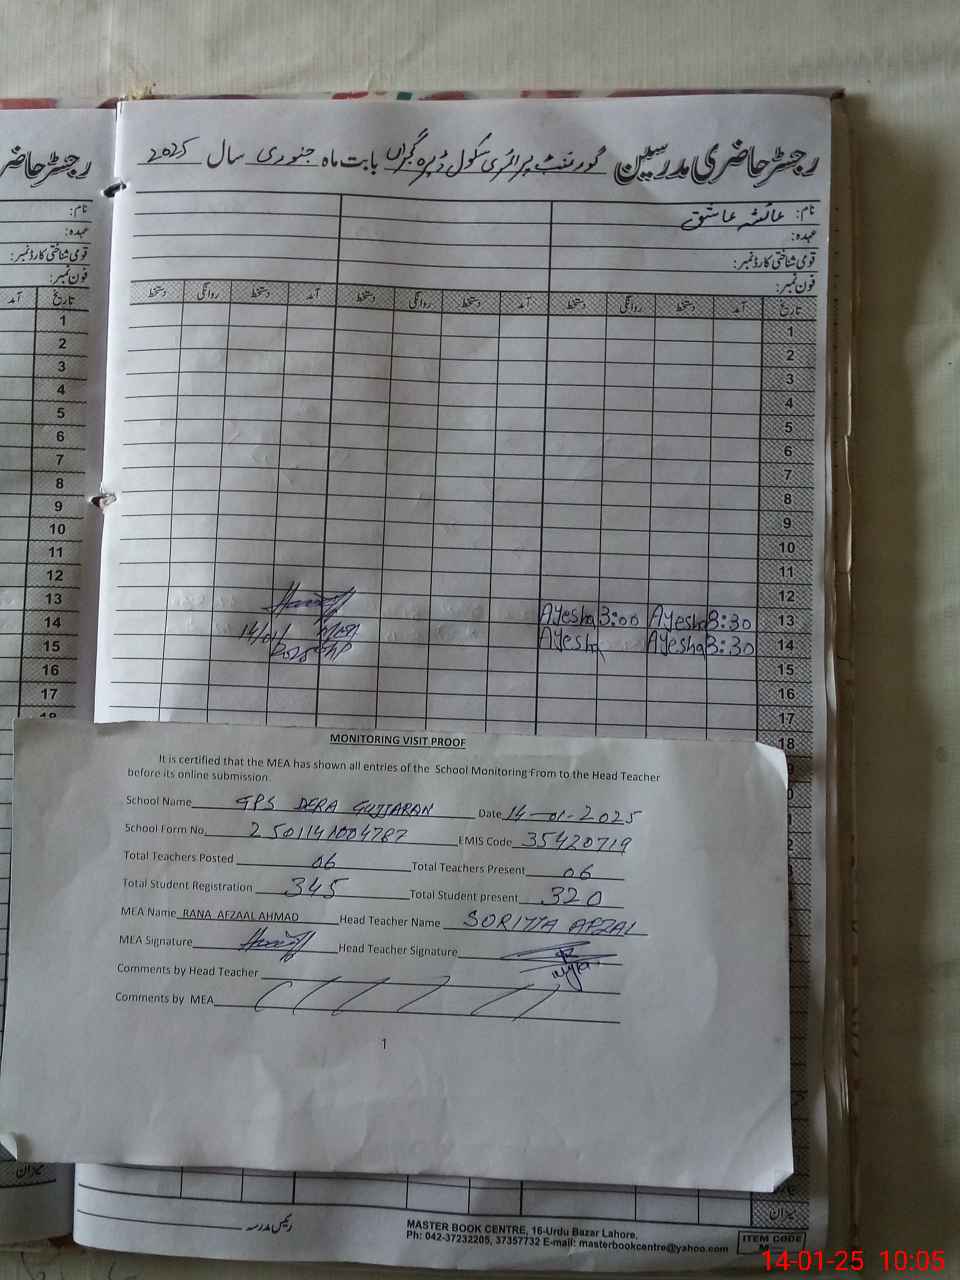 رجسٹر حاضری مدرسین گورنمنٹ پرائمری سکول ڈیرہ گجراں بابت ماہ جنوری سال 2025
رجسٹر حاضر
نام: عائشہ عاشق
عہدہ:
قومی شناختی کارڈ نمبر:
فون نمبر:
نام:
عہدہ:
قومی شناختی کارڈ نمبر:
فون نمبر:
تاریخ آمد دستخط روانگی دستخط آمد دستخط روانگی دستخط آمد دستخط روانگی دستخط
تاریخ آمد
1
2
3
4
5
6
7
8
9
10
11
12
13 8:30 Ayesha 3:00 Ayesha
14 8:30 Ayesha Ayesha
15
16
17
18
1
2
3
4
5
6
7
8
9
10
11
12
13
14
15
16
17
18
14/01/
2025
MONITORING VISIT PROOF
It is certified that the MEA has shown all entries of the School Monitoring From to the Head Teacher
before its online submission.
School Name GPS DERA GUJJARAN Date 14-01-2025
School Form No. 2501141004787 EMIS Code 35420719
Total Teachers Posted 06 Total Teachers Present 06
Total Student Registration 345 Total Student present 320
MEA Name RANA AFZAAL AHMAD Head Teacher Name SORITTA AFZAL
MEA Signature Head Teacher Signature
Comments by Head Teacher
Comments by MEA
1
میزان
میزان
رئیس مدرسہ
MASTER BOOK CENTRE, 16-Urdu Bazar Lahore.
Ph: 042-37232205, 37357732 E-mail: masterbookcentre@yahoo.com
ITEM CODE
14-01-25 10:05